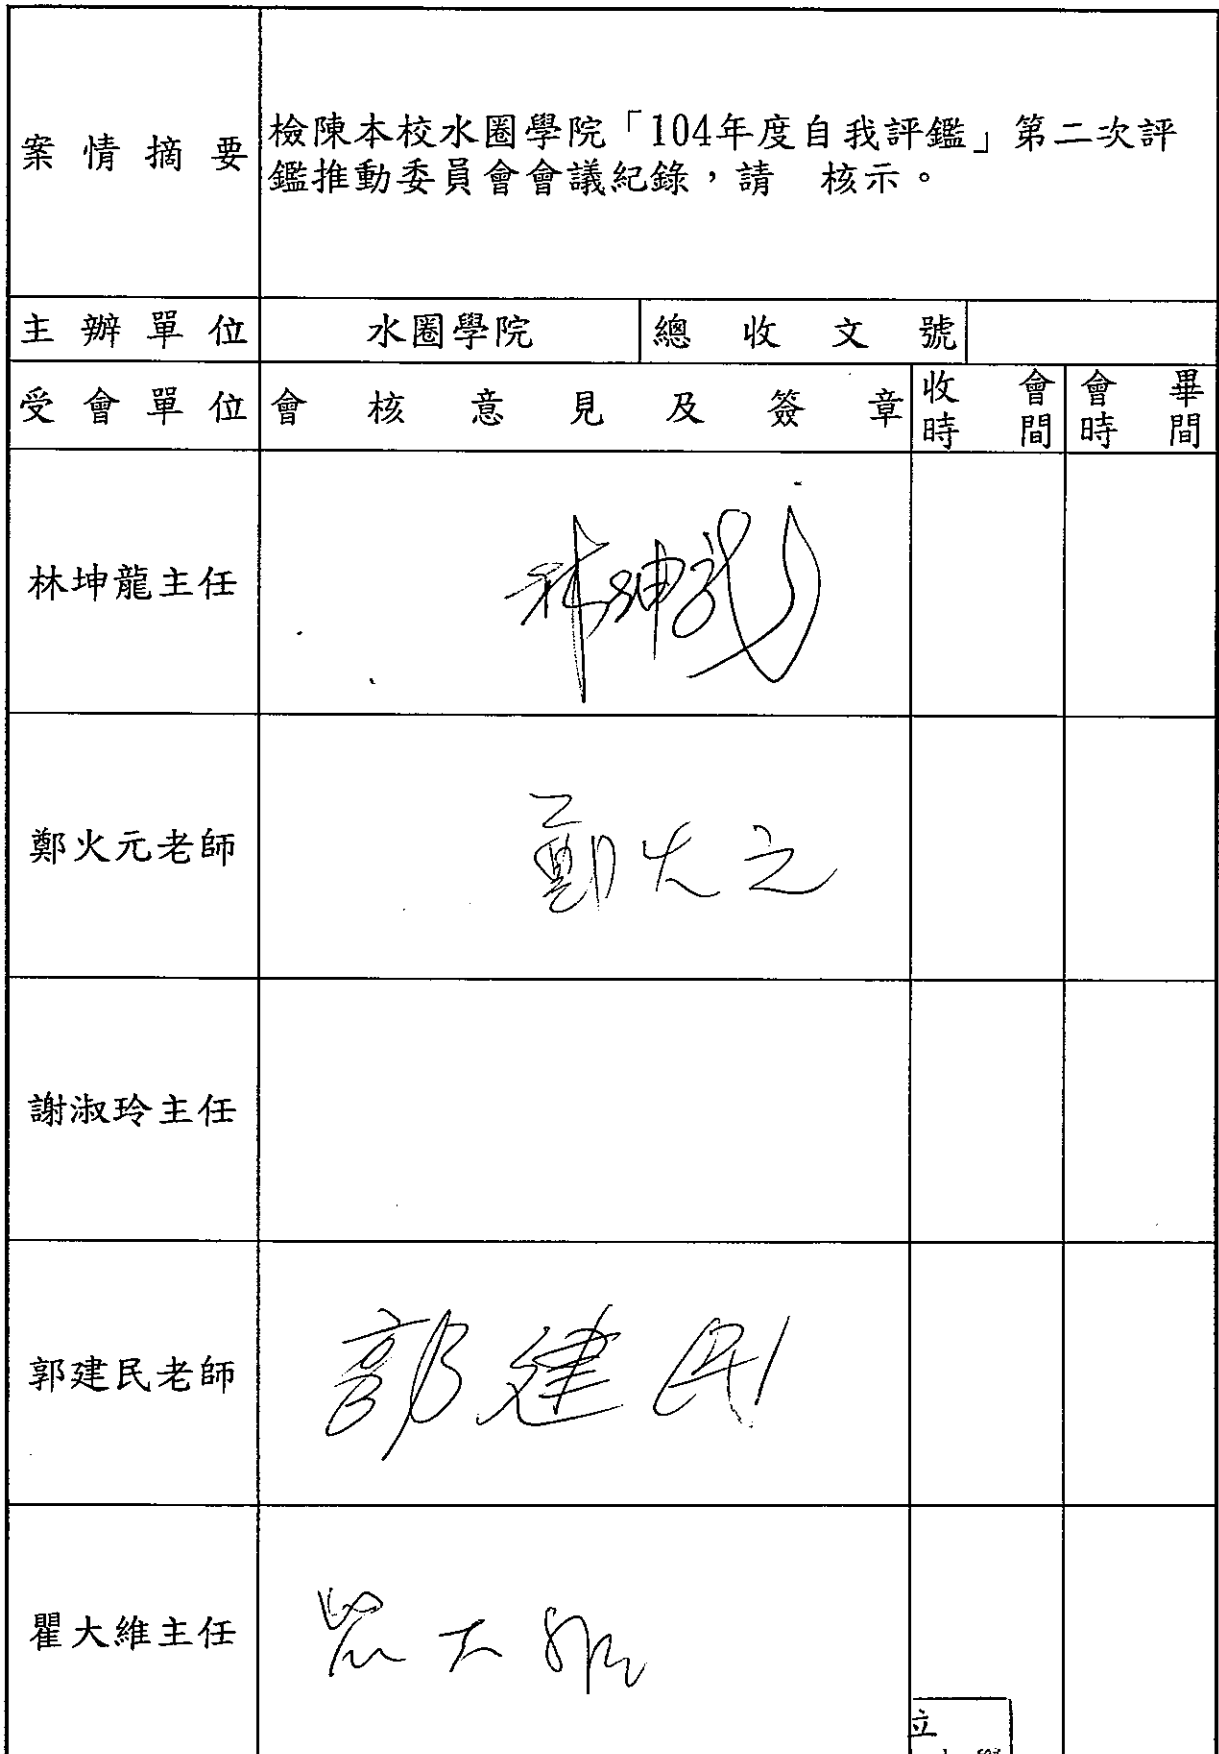 案情摘要
檢陳本校水圈學院「104年度自我評鑑」第二次評
鑑推動委員會會議紀錄，請　核示。
主辦單位 水圈學院 總收文號
受會單位 會核意見及簽章 收會時間 會畢時間
林坤龍主任 林坤龍
鄭火元老師 鄭火元
謝淑玲主任
郭建民老師 郭建民
瞿大維主任 瞿大維
立